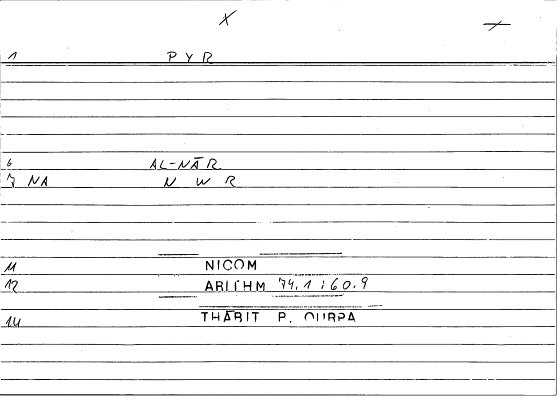 1 PYR
6 AL-NĀR
7 NA N W R
11 NICOM
12 ARITHM 74.1 : 60.9
14 THĀBIT P. QURRA